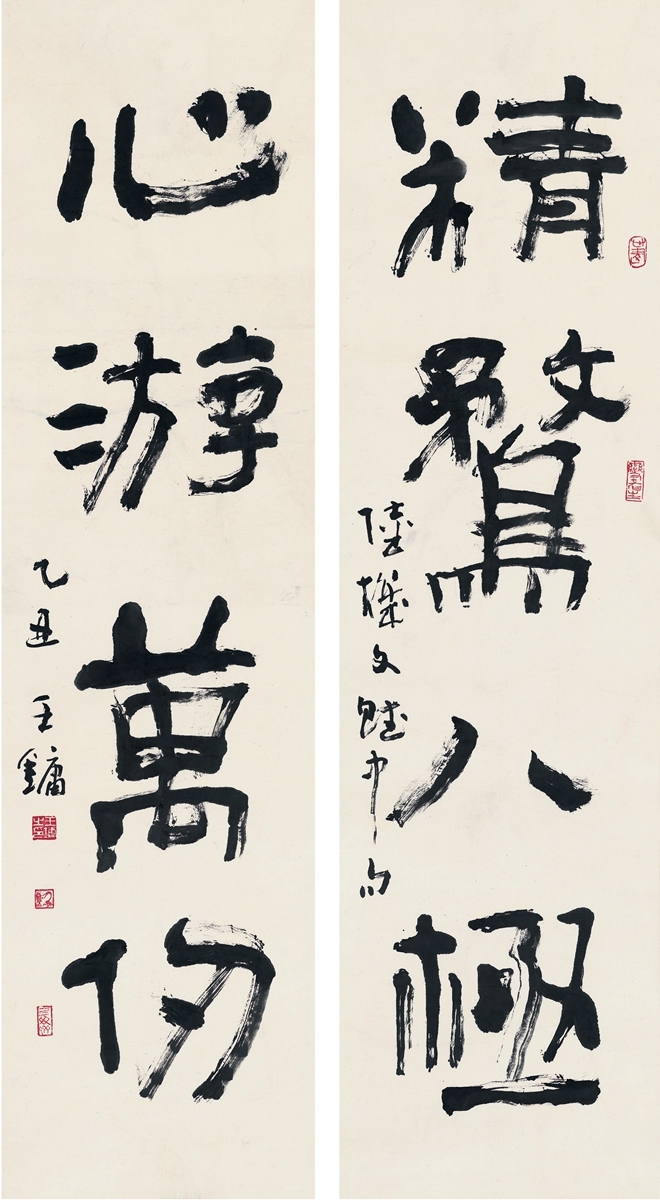 精騖八極
陸機文賦中句
心游萬仞
乙丑 王鏞